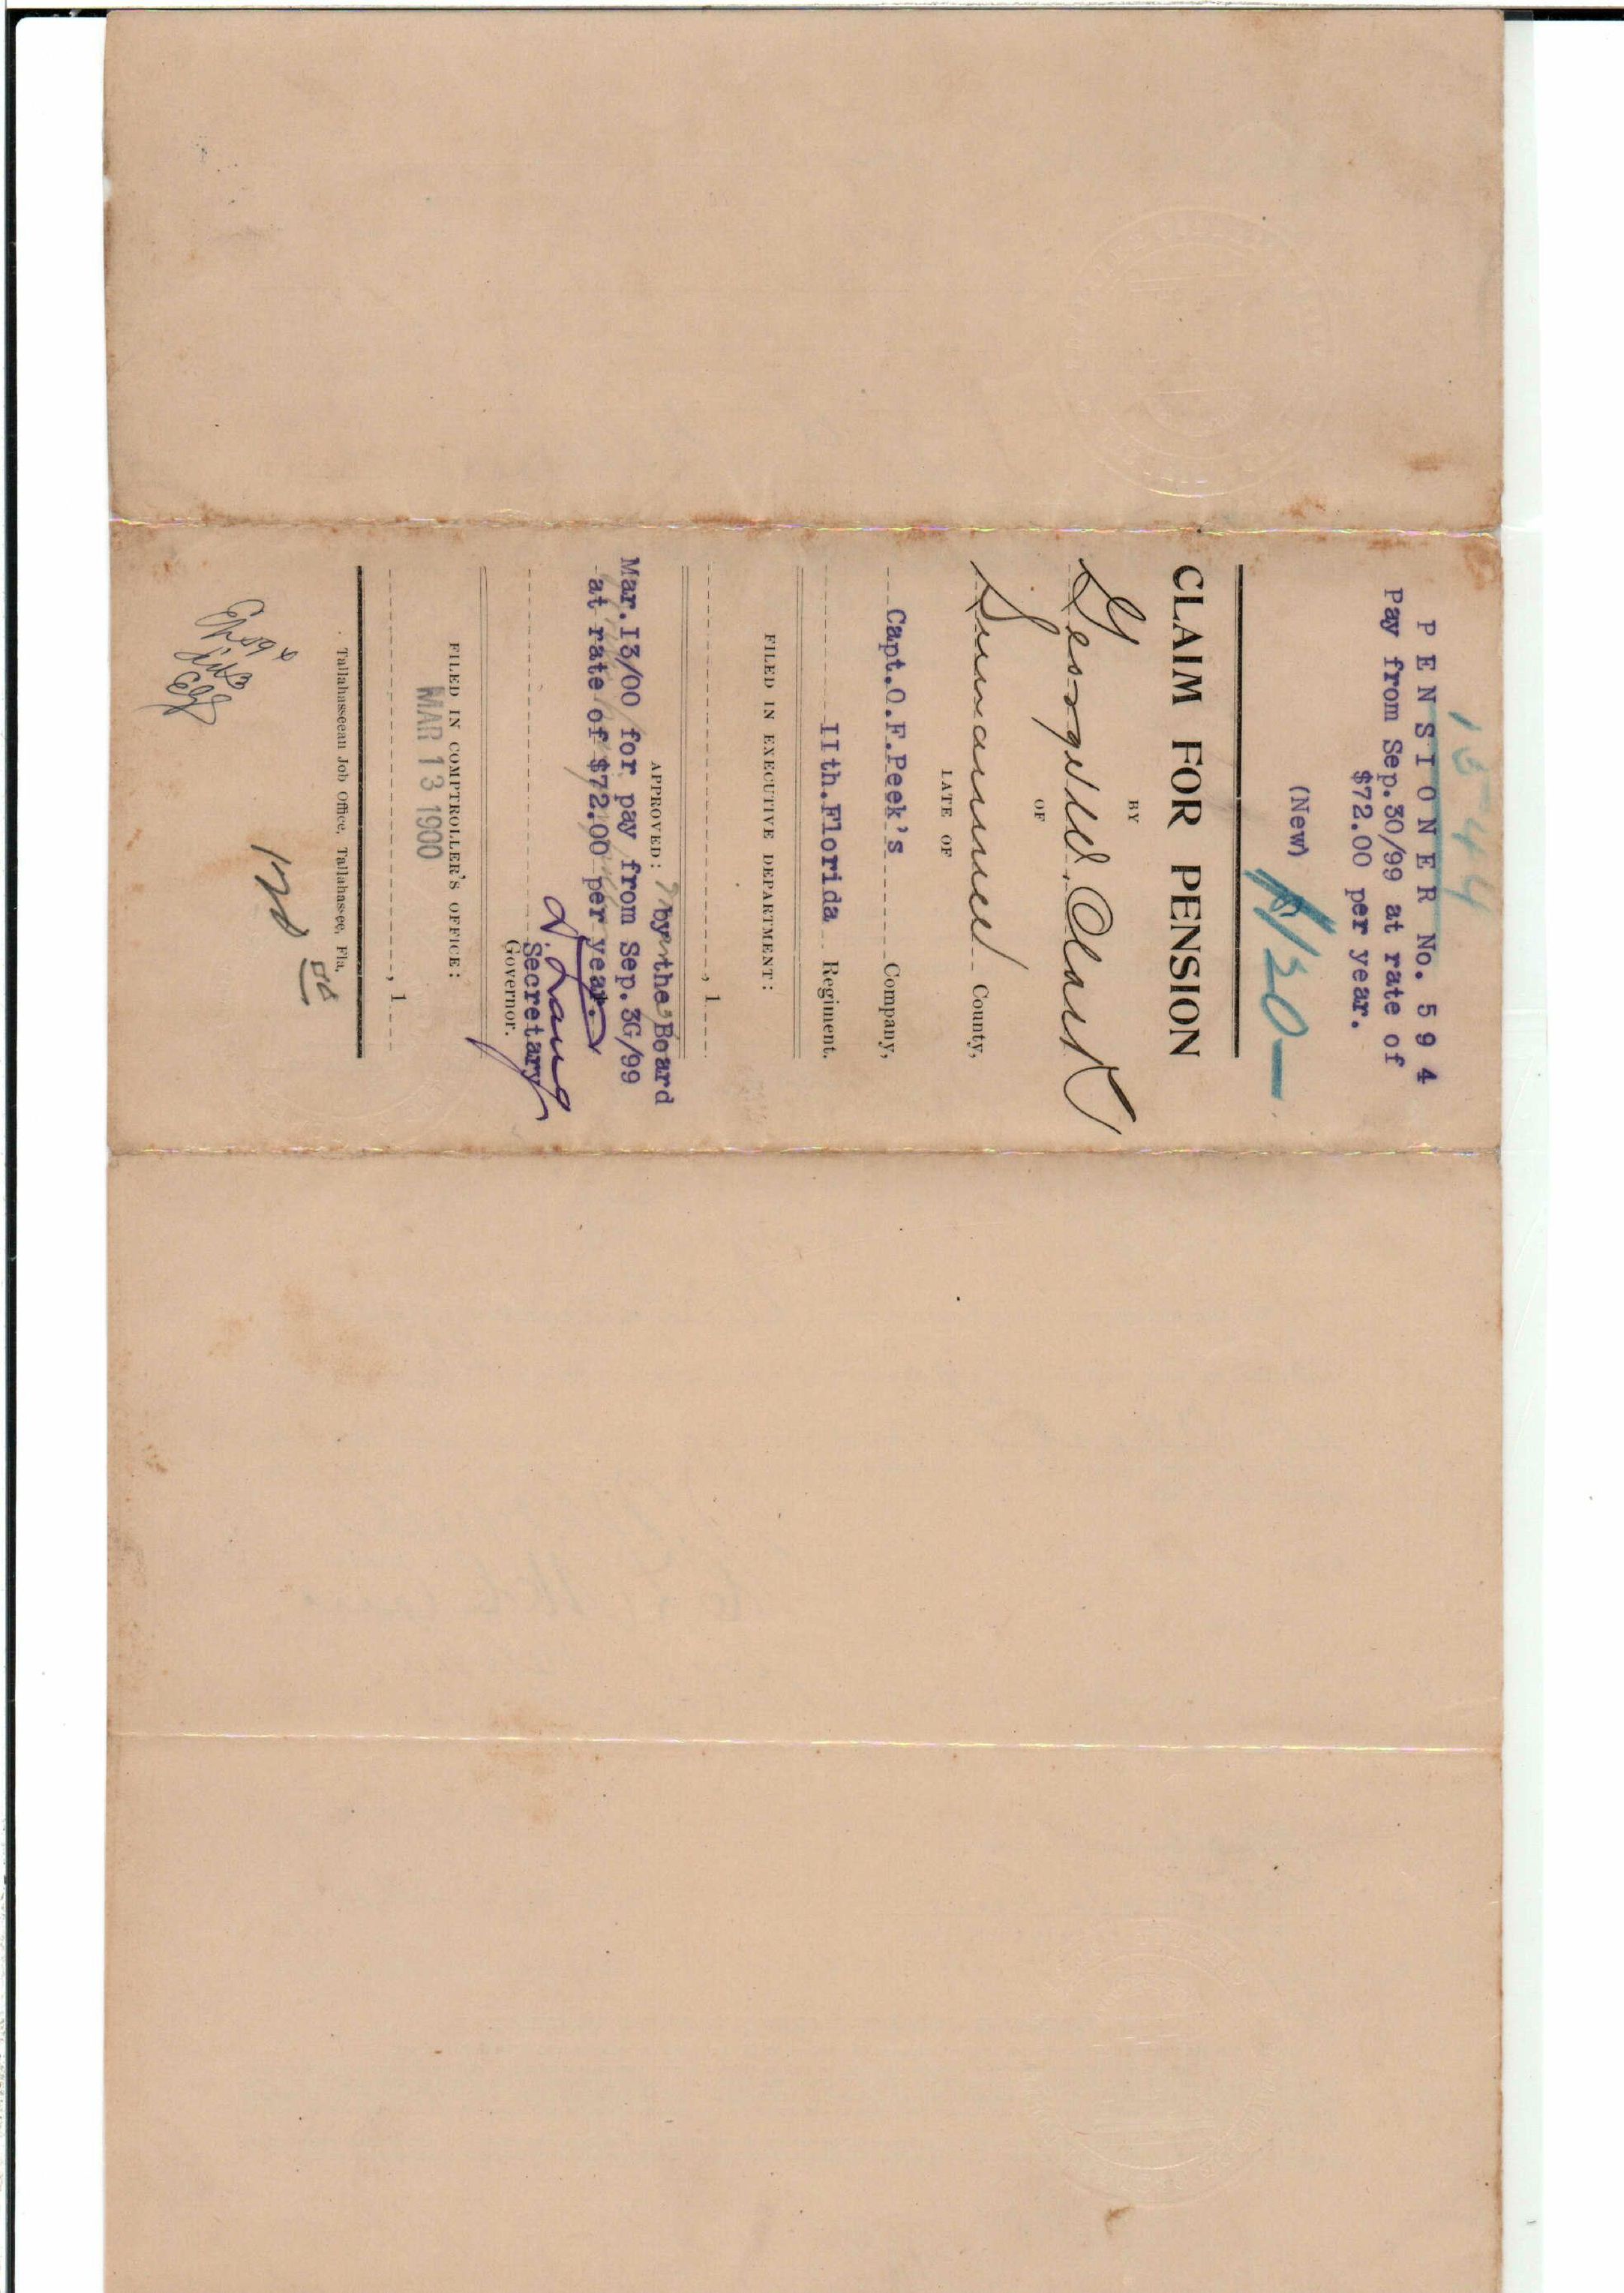 15444
PENSIONER No. 594
Pay from Sep.30/99 at rate of
$72.00 per year.
(New)
120—
CLAIM FOR PENSION
BY
George W. Clark
OF
Suwannee County,
LATE OF
Capt.O.F.Peek's Company,
IIth.Florida Regiment.
FILED IN EXECUTIVE DEPARTMENT:
, 1
APPROVED: by the Board
Mar.I3/00 for pay from Sep.3G/99
at rate of $72.00 per year.
D. Lang
Secretary
Governor.
FILED IN COMPTROLLER'S OFFICE:
MAR 13 1900
, 1
Tallahasseean Job Office, Tallahassee, Fla,